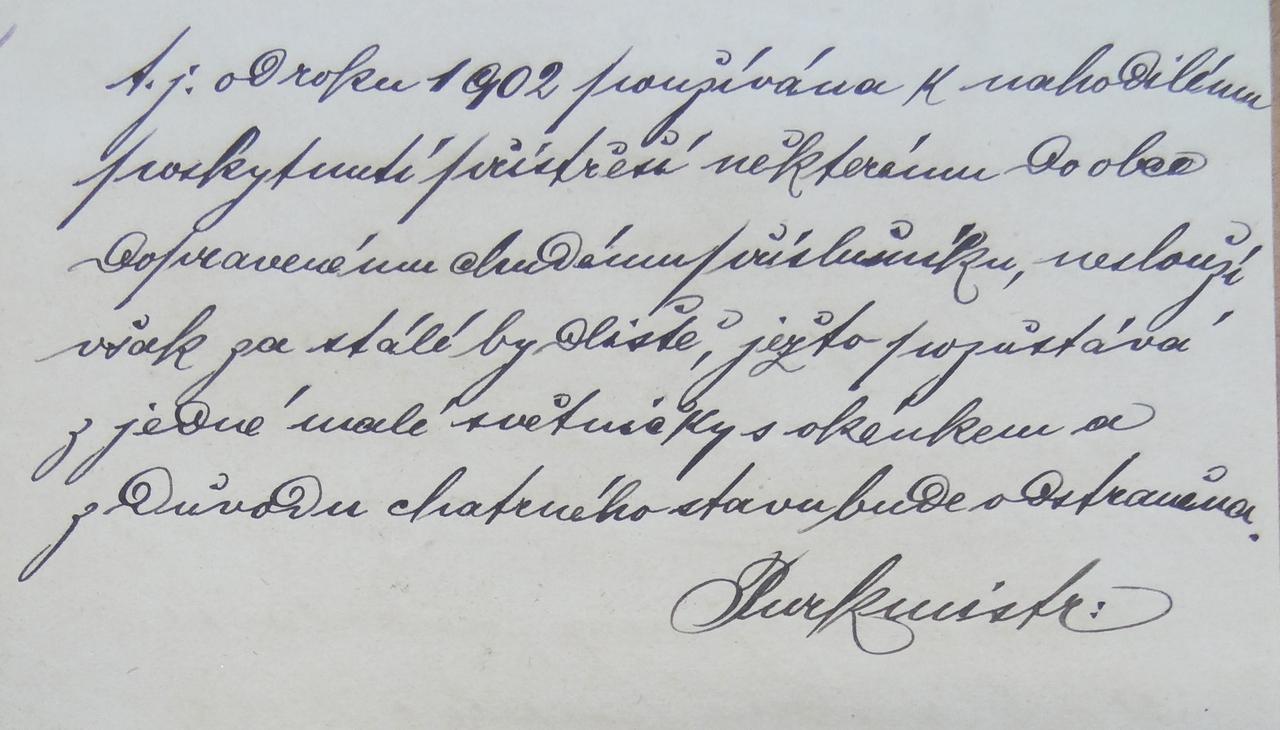 t. j. od roku 1902 používána k nahodilému
poskytnutí přístřeší některému do obce
dopravenému chudému příslušníku, neslouží
však za stálé bydliště, ježto pozůstává
z jedné malé světničky s okénkem a
z důvodu chatrného stavu bude odstraněna.
Purkmistr: